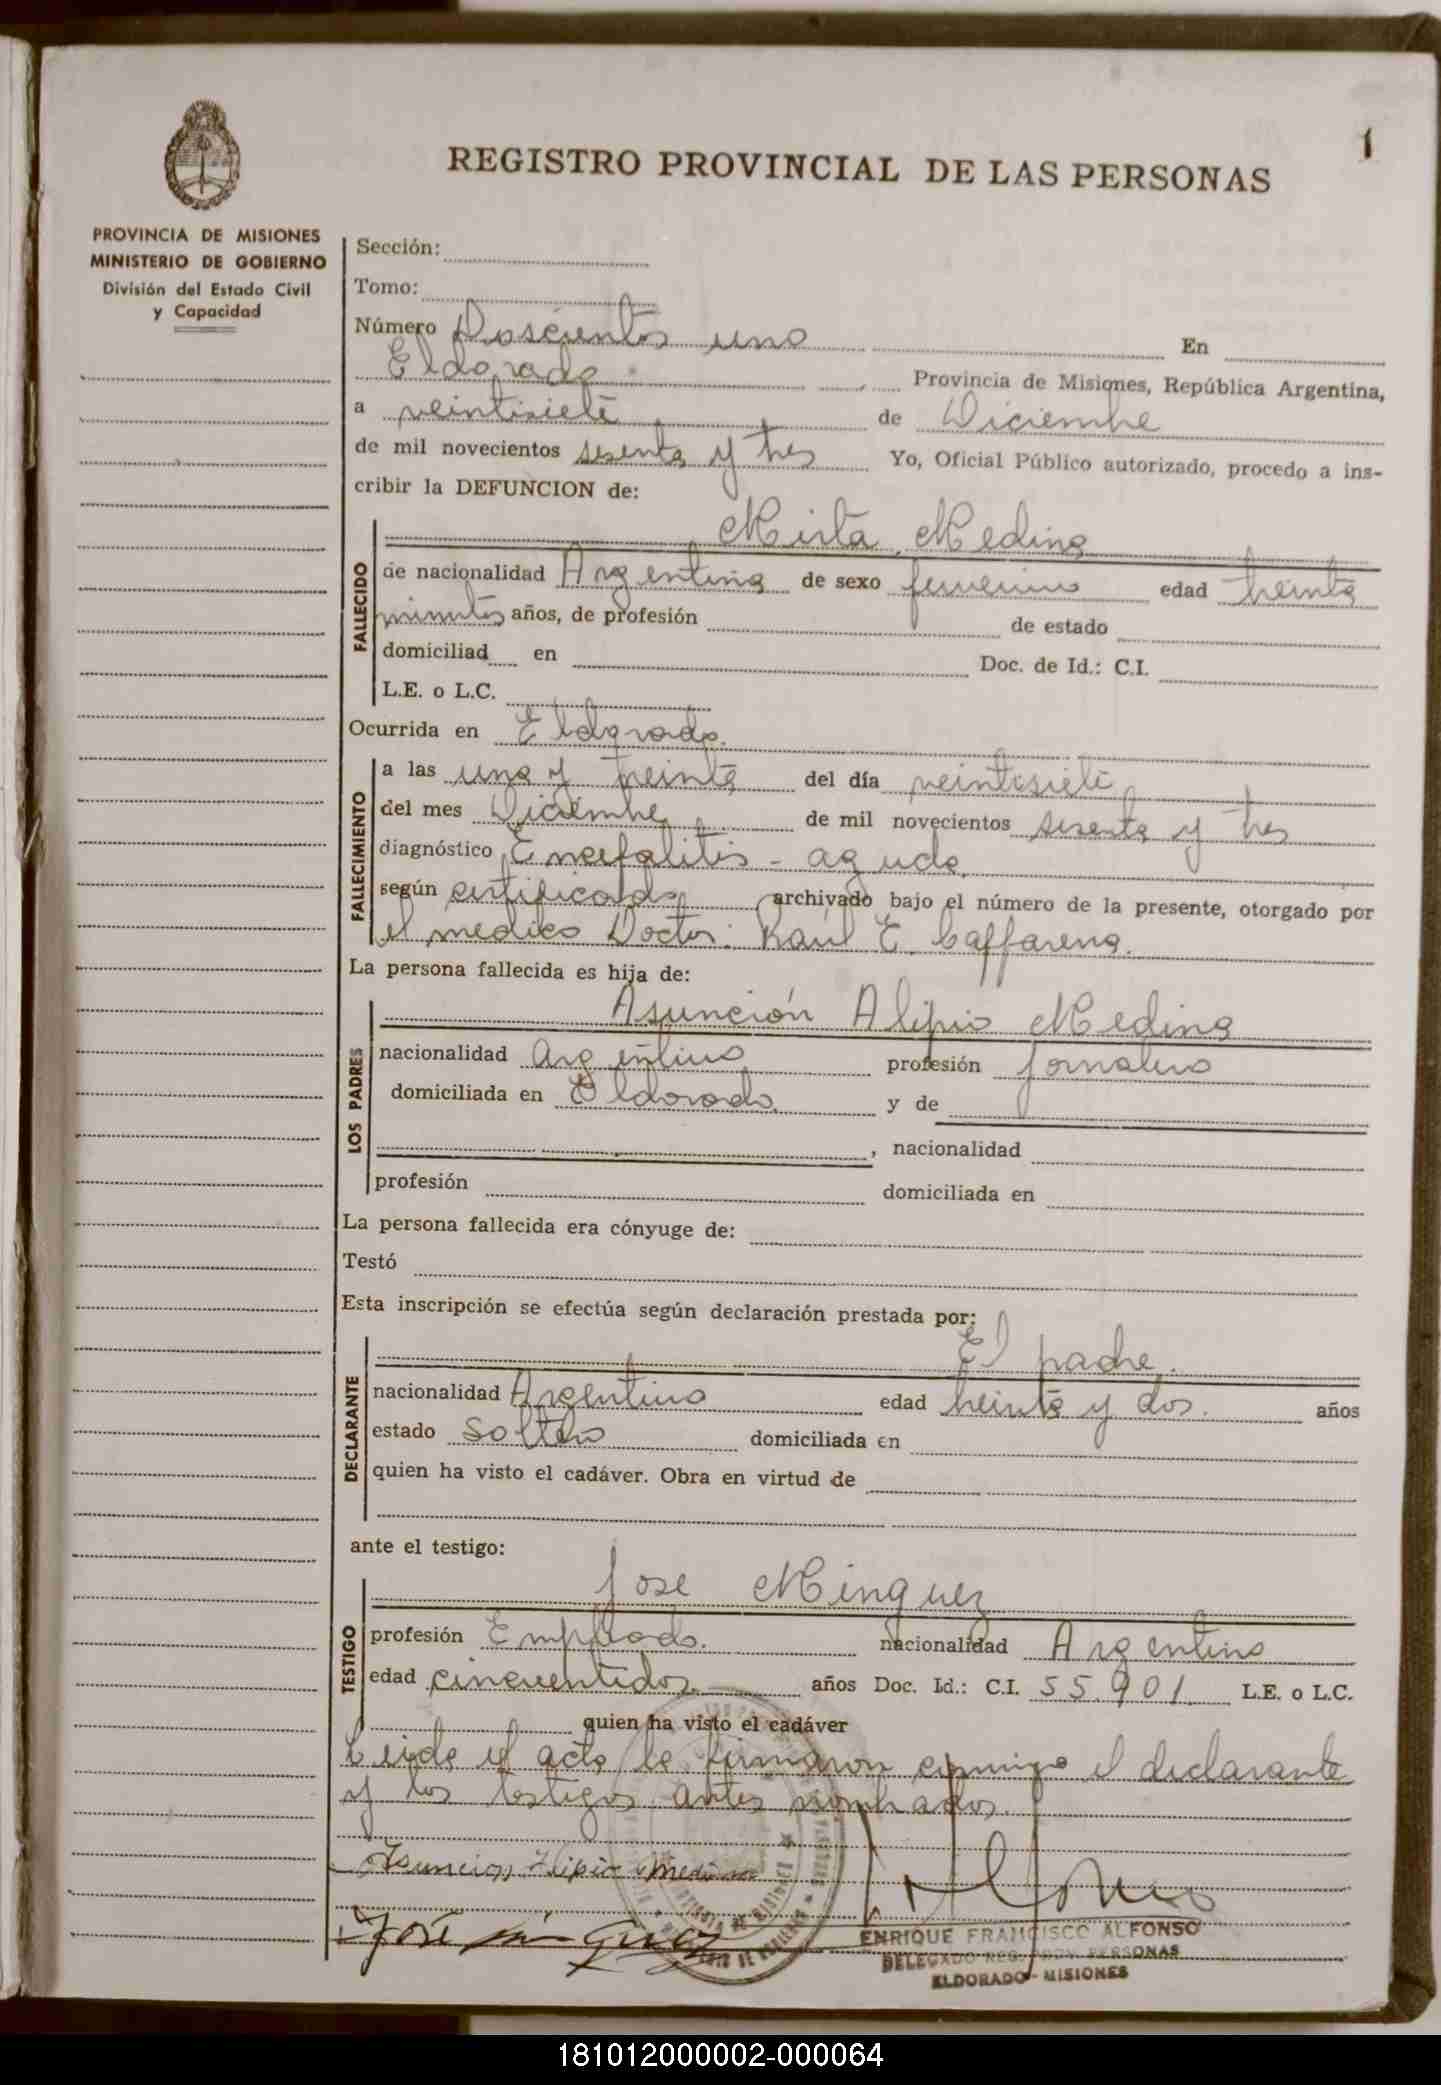 1
REGISTRO PROVINCIAL DE LAS PERSONAS
PROVINCIA DE MISIONES
MINISTERIO DE GOBIERNO
División del Estado Civil
y Capacidad
Sección:
Tomo:
Número Doscientos uno En
Eldorado Provincia de Misiones, República Argentina,
a veintisiete de Diciembre
de mil novecientos sesenta y tres Yo, Oficial Público autorizado, procedo a ins-
cribir la DEFUNCION de:
Mirta Medina
FALLECIDO
de nacionalidad Argentina de sexo femenino edad treinta
minutos años, de profesión de estado
domiciliad en Doc. de Id.: C.I.
L.E. o L.C.
Ocurrida en Eldorado.
FALLECIMIENTO
a las una y treinta del día veintisiete
del mes Diciembre de mil novecientos sesenta y tres
diagnóstico Encefalitis - aguda.
según certificado archivado bajo el número de la presente, otorgado por
el medico Doctor: Raúl E. Caffarena.
La persona fallecida es hija de:
LOS PADRES
Asunción Alipio Medina
nacionalidad Argentino profesión Jornalero
domiciliada en Eldorado y de
, nacionalidad
profesión domiciliada en
La persona fallecida era cónyuge de:
Testó
Esta inscripción se efectúa según declaración prestada por:
DECLARANTE
El padre.
nacionalidad Argentino edad treinta y dos. años
estado Soltero domiciliada en
quien ha visto el cadáver. Obra en virtud de
ante el testigo:
TESTIGO
Jose Minguez
profesión Empleado. nacionalidad Argentino
edad cincuentidos. años Doc. Id.: C.I. 55.901. L.E. o L.C.
quien ha visto el cadáver
Leida el acta la firmaron conmigo el declarante
y los testigos antes nombrados.
Asuncion Alipio Medina
José Minguez
ENRIQUE FRANCISCO ALFONSO
DELEGADO REG. PROV. PERSONAS
ELDORADO - MISIONES
181012000002-000064